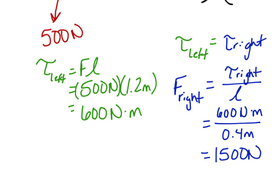 500N
τ_left = Fl
=(500N)(1.2m)
= 600N·m
τ_left = τ_right
F_right = τ_right / l
= 600N·m / 0.4m
= 1500N